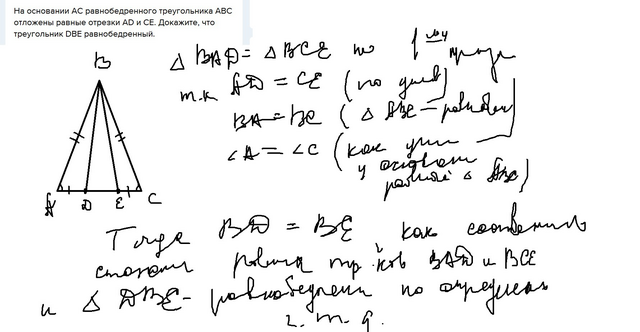 На основании АС равнобедренного треугольника АВС
отложены равные отрезки AD и CE. Докажите, что
треугольник DBE равнобедренный.
B
A D E C
△ BAD = △ BCE по 1 му
т.к AD = CE (по услов)
BA = BC (△ ABC – равнобед)
∠A = ∠C (как углы
у основан
равноб △ ABC)
Тогда BD = BE как соответств
стороны равных тр-ков BAD и BCE
и △ DBE – равнобедрен по определен
ч. т. д.